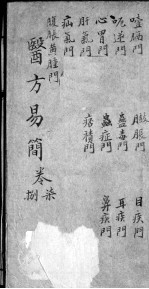 噎膈門
呃逆門
心胃門
肝氣門
疝氣門
腹脹黃腫門
臌脹門
蠱毒門
蟲症門
痞積門
目疾門
耳疾門
鼻疾門
醫方易簡
卷柒
捌